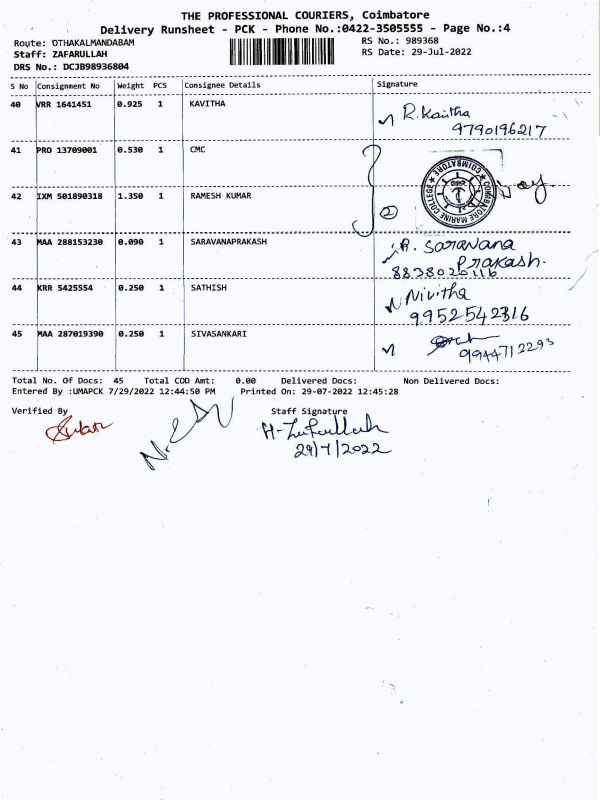 THE PROFESSIONAL COURIERS, Coimbatore
Delivery Runsheet - PCK - Phone No.:0422-3505555 - Page No.:4
Route: OTHAKALMANDABAM
RS No.: 989368
Staff: ZAFARULLAH
RS Date: 29-Jul-2022
DRS No.: DCJB98936804
S No Consignment No Weight PCS Consignee Details Signature
40 VRR 1641451 0.925 1 KAVITHA R. Kavitha
9790196217
41 PRO 13709001 0.530 1 CMC
COIMBATORE MARINE COLLEGE ★ COIMBATORE ★
42 IXM 501890318 1.350 1 RAMESH KUMAR 2
43 MAA 288153230 0.090 1 SARAVANAPRAKASH R. Saravana
Prakash.
8838026116
44 KRR 5425554 0.250 1 SATHISH Nivitha
9952542316
45 MAA 287019390 0.250 1 SIVASANKARI
9944712293
Total No. Of Docs: 45 Total COD Amt: 0.00 Delivered Docs: Non Delivered Docs:
Entered By :UMAPCK 7/29/2022 12:44:50 PM Printed On: 29-07-2022 12:45:28
Verified By Staff Signature
H-Zafarullah
29/7/2022